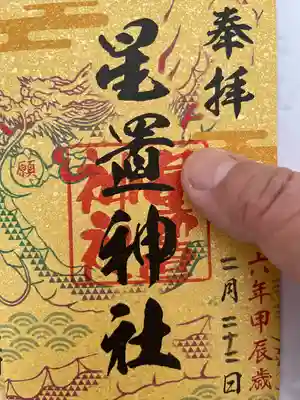 奉拝
星置神社
六年甲辰歳
二月二十二日
願